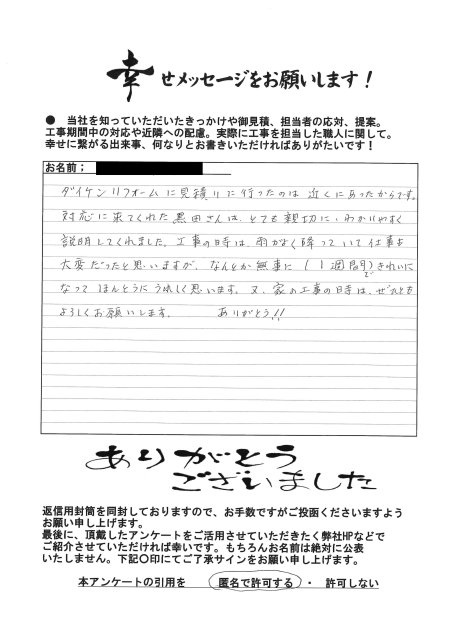 幸せメッセージをお願いします！
● 当社を知っていただいたきっかけや御見積、担当者の応対、提案。
工事期間中の対応や近隣への配慮。実際に工事を担当した職人に関して。
幸せに繋がる出来事、何なりとお書きいただければありがたいです！
お名前；
ダイケンリフォームに見積りに行ったのは近くにあったからです。
対応に来てくれた黒田さんは、とても親切に、わかりやすく
説明してくれました。工事の時は、雨がなく降っていて仕事も
大変だったと思いますが、なんとか無事に（1週間）できれいに
なってほんとうにうれしく思います。又、家の工事の時は、ぜひとも
よろしくお願いします。 ありがとう!!
ありがとう
ございました
返信用封筒を同封しておりますので、お手数ですがご投函くださいますよう
お願い申し上げます。
最後に、頂戴したアンケートをご活用させていただきたく弊社HPなどで
ご紹介させていただければ幸いです。もちろんお名前は絶対に公表
いたしません。下記〇印にてご了承サインをお願い申し上げます。
本アンケートの引用を 匿名で許可する ・ 許可しない